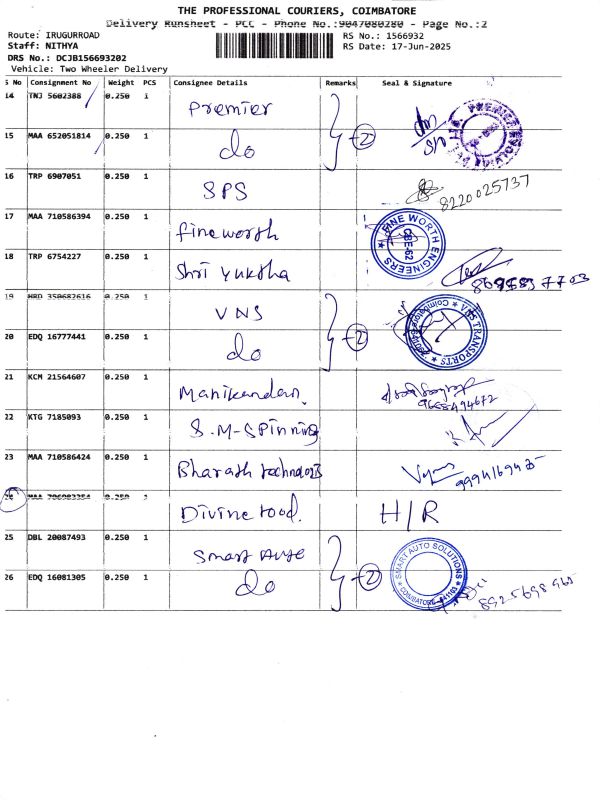 THE PROFESSIONAL COURIERS, COIMBATORE
Delivery Runsheet - PCC - Phone No.:9047080280 - Page No.:2
Route: IRUGURROAD
RS No.: 1566932
Staff: NITHYA
RS Date: 17-Jun-2025
DRS No.: DCJB156693202
Vehicle: Two Wheeler Delivery
S No Consignment No Weight PCS Consignee Details Remarks Seal & Signature
14 TNJ 5602388 0.250 1 Premier
15 MAA 652051814 0.250 1 do 2
16 TRP 6907051 0.250 1 SPS 8220025737
17 MAA 710586394 0.250 1 fineworth FINE WORTH ENGINEERS CBE-62
18 TRP 6754227 0.250 1 Shri Yuktha
19 HRD 350682616 0.250 1 VNS VNS TRANSPORTS
20 EDQ 16777441 0.250 1 do 2
21 KCM 21564607 0.250 1 Manikandan. 9658494672
22 KTG 7185093 0.250 1 S.M-Spinning
23 MAA 710586424 0.250 1 Bharath technologies
24 0.250 1 Divine food. H/R
25 DBL 20087493 0.250 1 Smart Auto SMART AUTO SOLUTIONS COIMBATORE
26 EDQ 16081305 0.250 1 do 2